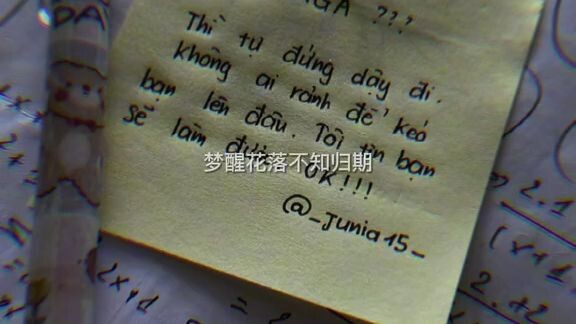 GA ???
Thì tự đứng dậy đi.
không ai rảnh để kéo
bạn lên đâu. Tôi tin bạn
sẽ làm được OK!!!
梦醒花落不知归期
@_Junia15_
DA
2x
2x+1
=
2.1
(x+1
2.+2